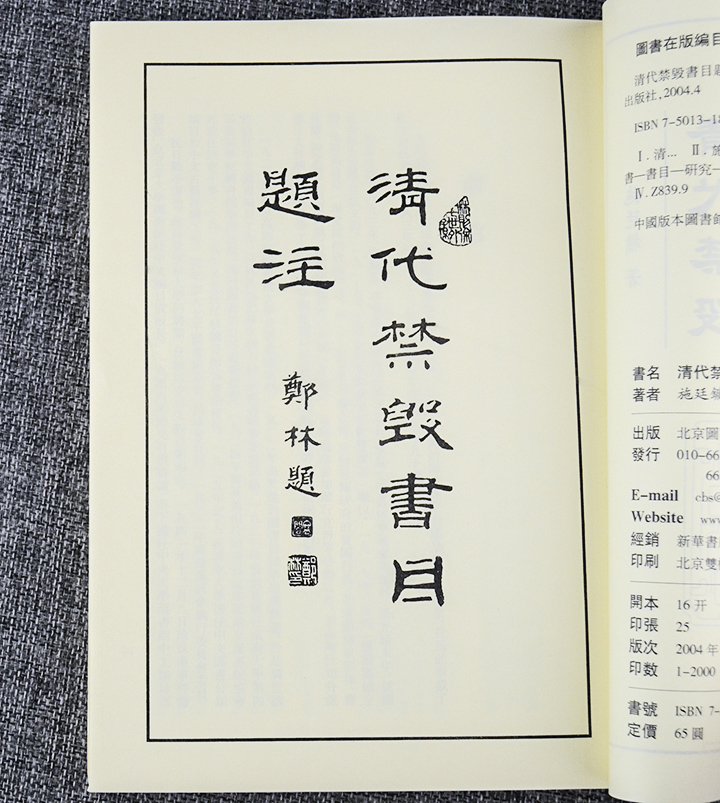 清代禁毁書目
題注
鄭林題
圖書在版編目
清代禁毀書目題
出版社,2004.4
ISBN 7-5013-18
Ⅰ.清... Ⅱ.施
書—書目—研究—
Ⅳ.Z839.9
中國版本圖書館
書名 清代禁
著者 施廷鏞
出版 北京圖
發行 010-66
66
E-mail cbs@
Website www
經銷 新華書
印刷 北京雙
開本 16开
印張 25
版次 2004年
印数 1-2000
書號 ISBN 7-
定價 65圓